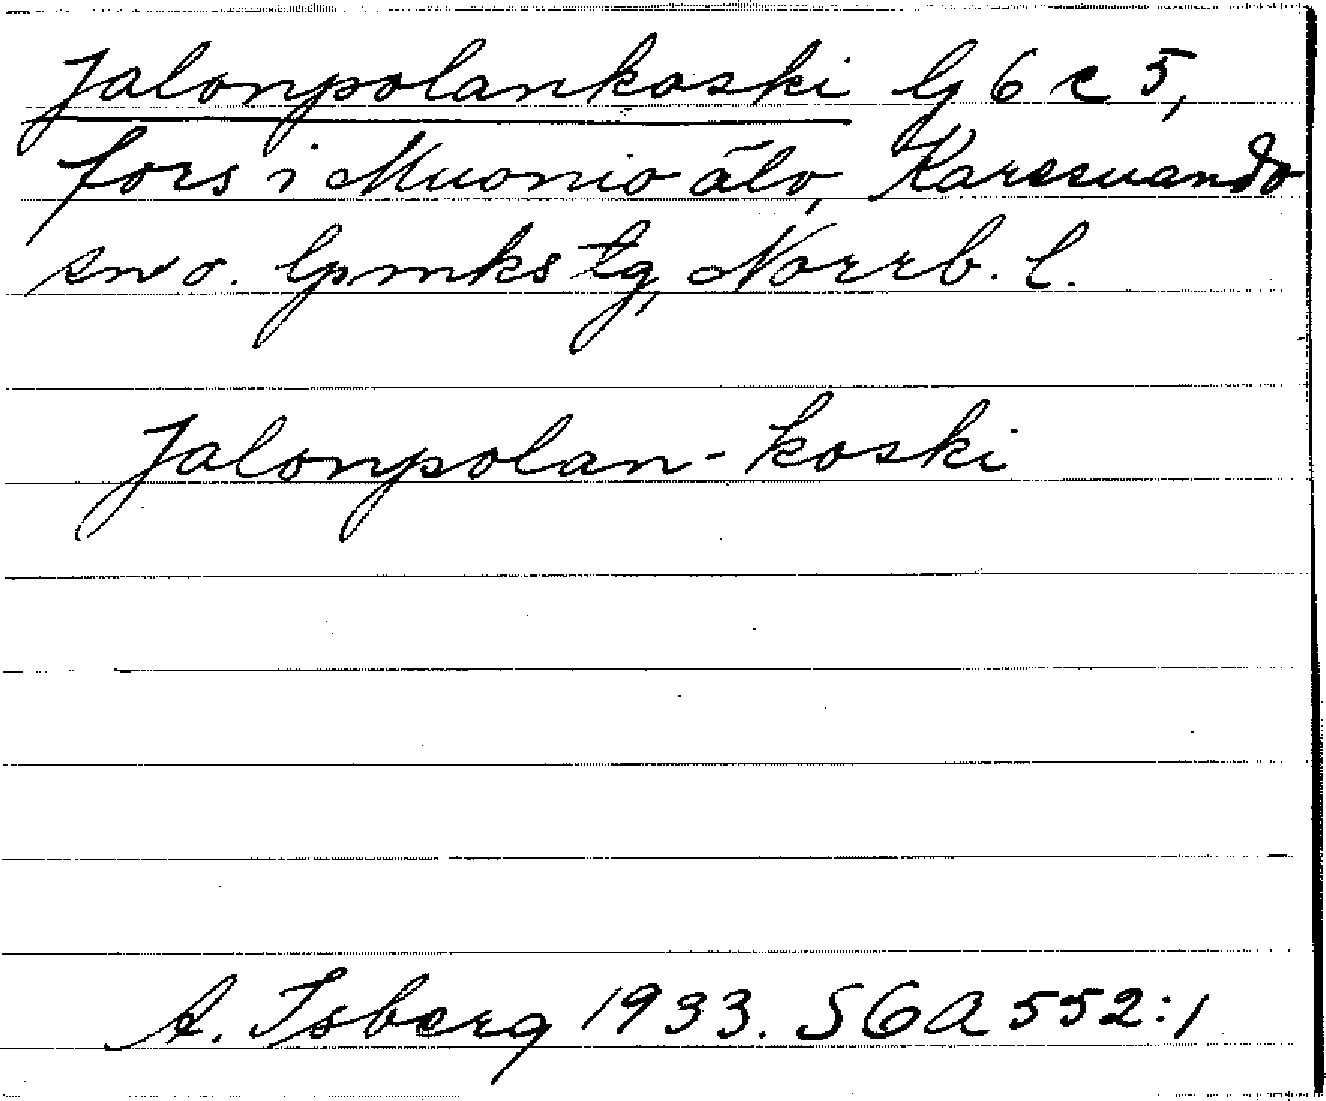 Jalonpolankoski lg 6 c 5,
fors i Muonio älv, Karesuando
sn o. lpmks tg, Norrb. l.
Jalonpolan-koski
A. Isberg 1933. SGA 552:1